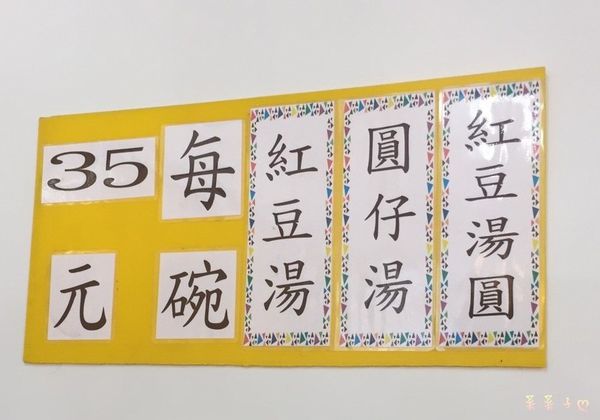 紅豆湯圓
圓仔湯
紅豆湯
每碗
35元